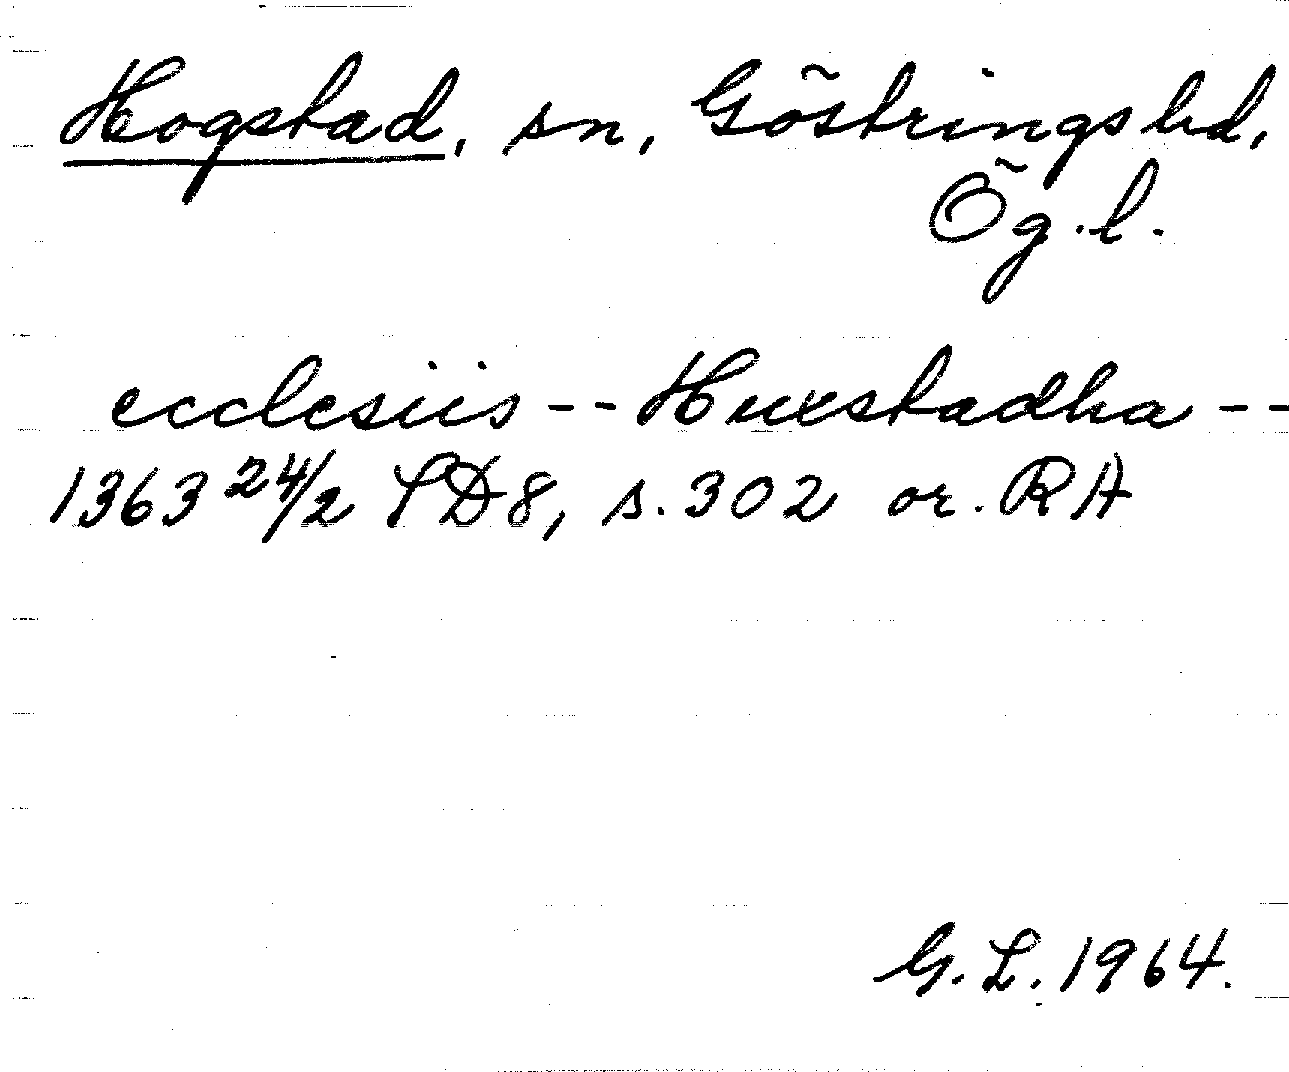 Hogstad, sn, Göstrings hd,
Ög.l.
ecclesiis -- Huxstadha --
1363 24/2 SD8, s. 302 or. RA
G. L. 1964.